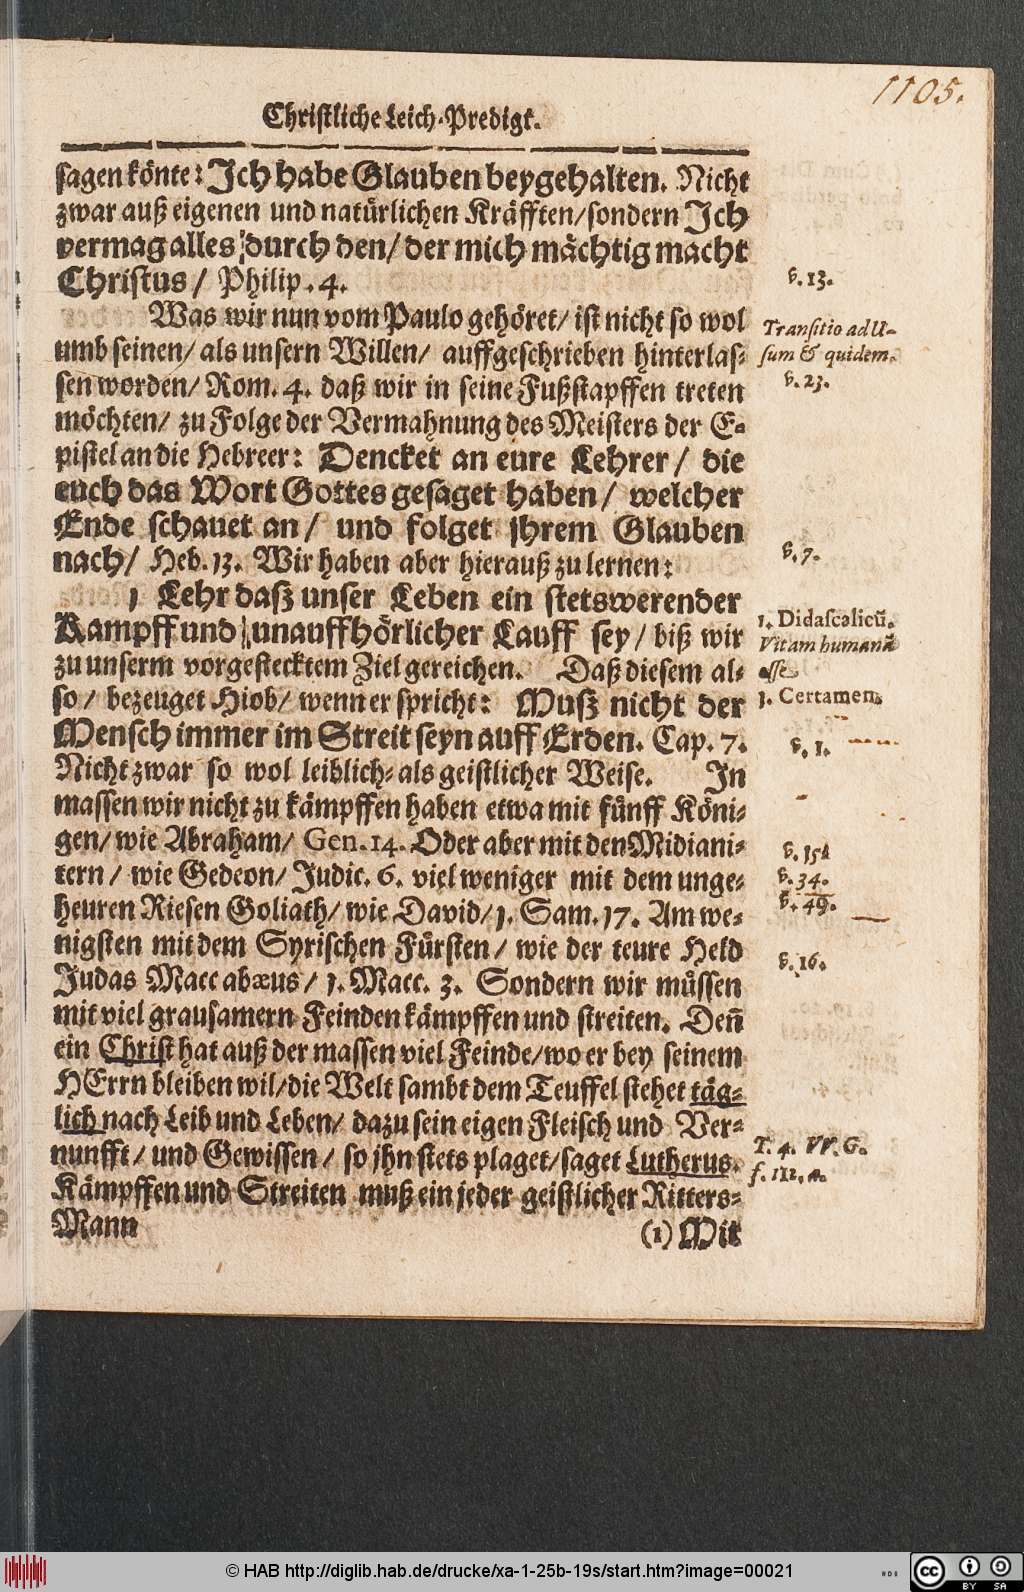 1105.
Christliche Leich-Predigt.
sagen könte: Ich habe Glauben beygehalten. Nicht
zwar auß eigenen und natürlichen Kräfften/sondern Ich
vermag alles durch den/ der mich mächtig macht
Christus/ Philip. 4.
v. 13.
Was wir nun vom Paulo gehöret/ ist nicht so wol
Transitio ad U-
umb seinen/ als unsern Willen/ auffgeschrieben hinterlas-
sum & quidem.
sen worden/ Rom. 4. daß wir in seine Fußstapffen treten
v. 23.
möchten/ zu Folge der Vermahnung des Meisters der E-
pistel an die Hebreer: Dencket an eure Lehrer/ die
euch das Wort Gottes gesaget haben/ welcher
Ende schauet an/ und folget jhrem Glauben
nach/ Heb. 13. Wir haben aber hierauß zu lernen:
v. 7.
1 Lehr dasz unser Leben ein stetswerender
Kampff und unauffhörlicher Lauff sey/ biß wir
1. Didascalicũ.
Vitam humanã
zu unserm vorgestecktem Ziel gereichen. Daß diesem al-
esse
so/ bezeuget Hiob/ wenn er spricht: Musz nicht der
1. Certamen.
Mensch immer im Streit seyn auff Erden. Cap. 7.
v. 1.
Nicht zwar so wol leiblich- als geistlicher Weise. In
massen wir nicht zu kämpffen haben etwa mit fünff Köni-
gen/ wie Abraham/ Gen. 14. Oder aber mit den Midiani-
v. 15.
tern/ wie Gedeon/ Judic. 6. viel weniger mit dem unge-
v. 34.
heuren Riesen Goliath/ wie David/ 1. Sam. 17. Am we-
v. 49.
nigsten mit dem Syrischen Fürsten/ wie der teure Held
v. 16.
Judas Maccabæus/ 1. Macc. 3. Sondern wir müssen
mit viel grausamern Feinden kämpffen und streiten. Deñ
ein Christ hat auß der massen viel Feinde/wo er bey seinem
HErrn bleiben wil/die Welt sambt dem Teuffel stehet täg-
lich nach Leib und Leben/ dazu sein eigen Fleisch und Ver-
nunfft/ und Gewissen/ so jhn stets plaget/saget Lutherus.
T. 4. W. G.
f. 112. a.
Kämpffen und Streiten muß ein jeder geistlicher Ritters-
Mann
(1) Mit
© HAB http://diglib.hab.de/drucke/xa-1-25b-19s/start.htm?image=00021
cc BY SA